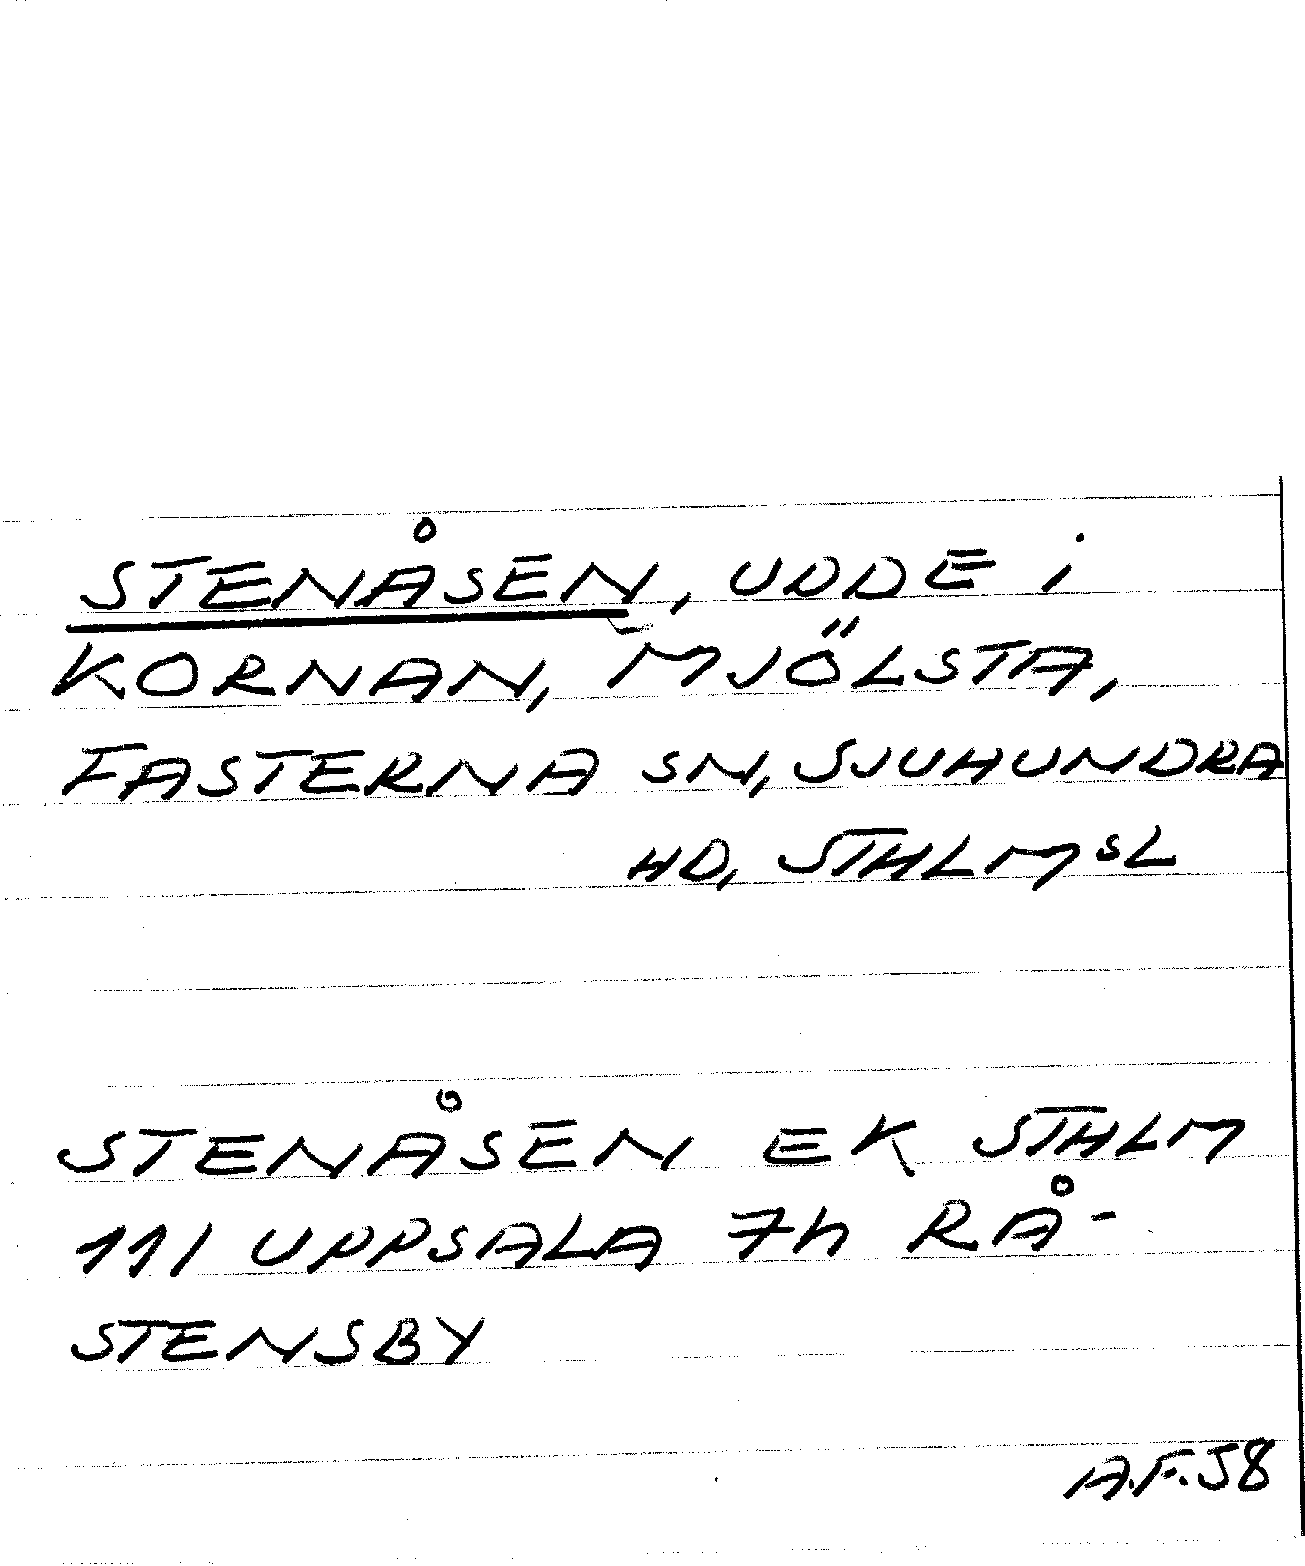 STENÅSEN, UDDE i
KORNAN, MJÖLSTA,
FASTERNA SN, SJUHUNDRA
HD, STHLMSL
STENÅSEN EK STHLM
111 UPPSALA 7h RÅ-
STENSBY
A.F. 58